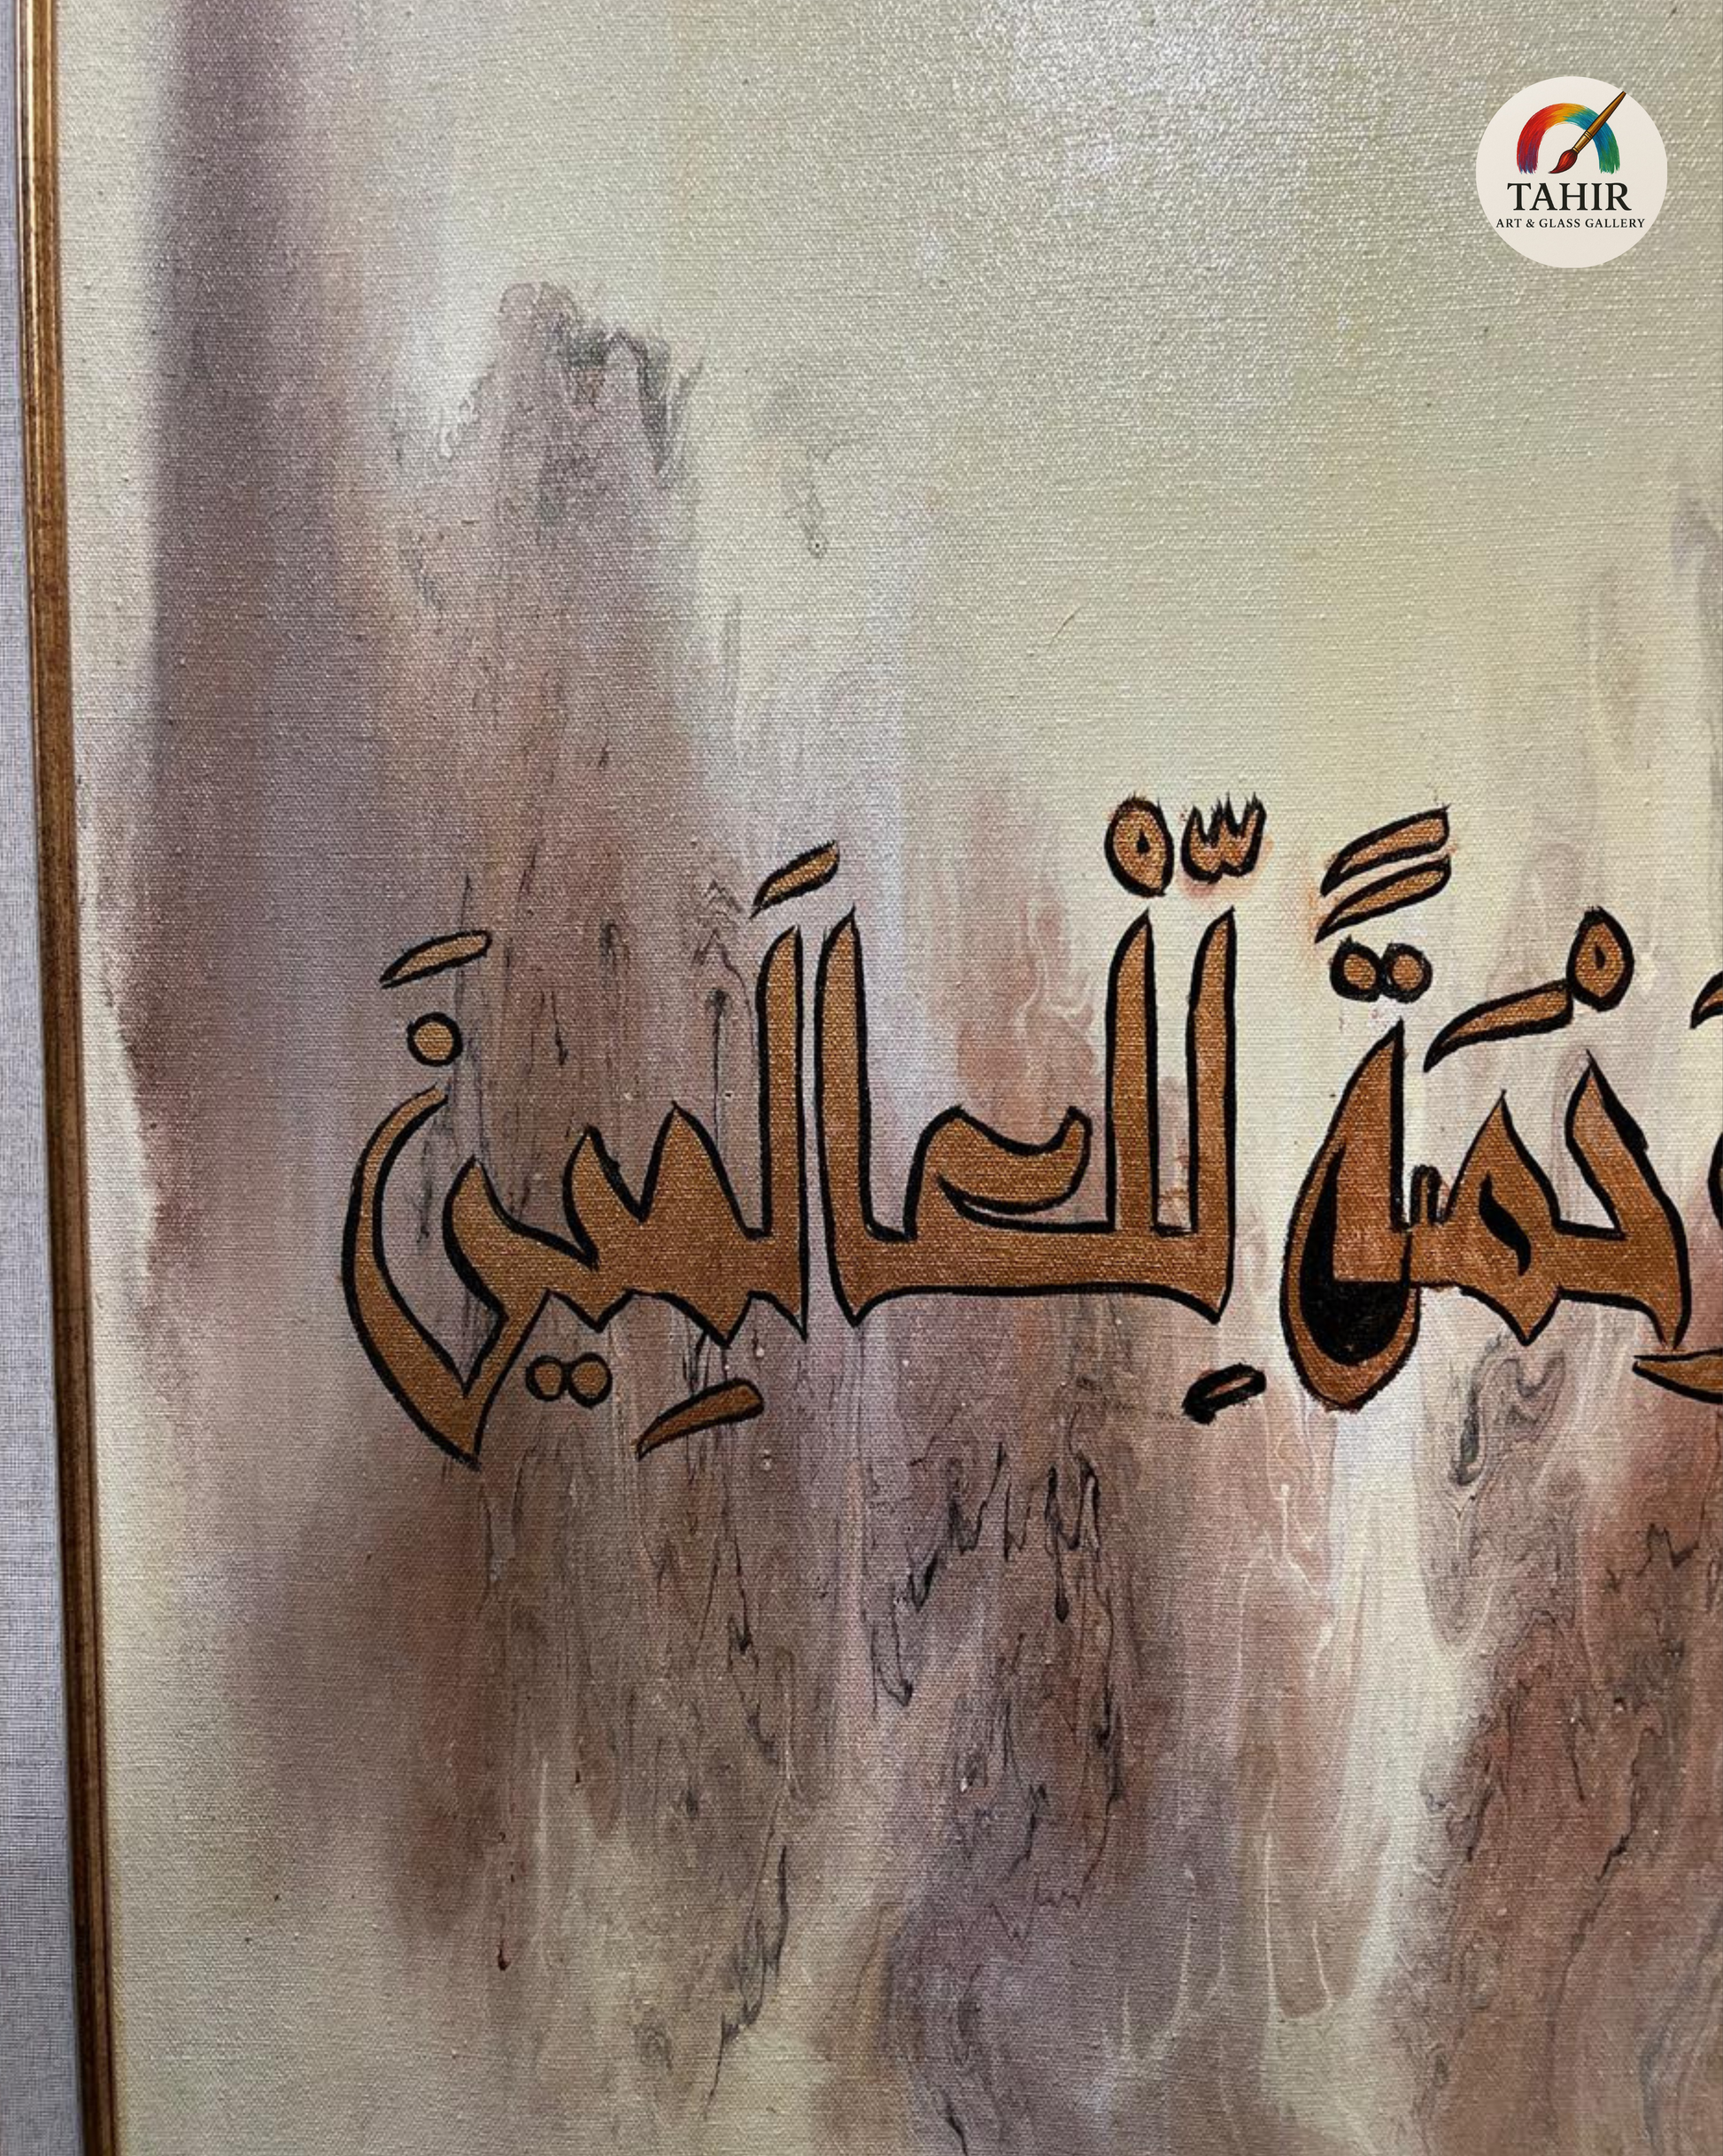 رَحْمَةً لِّلْعَالَمِينَ
TAHIR
ART & GLASS GALLERY